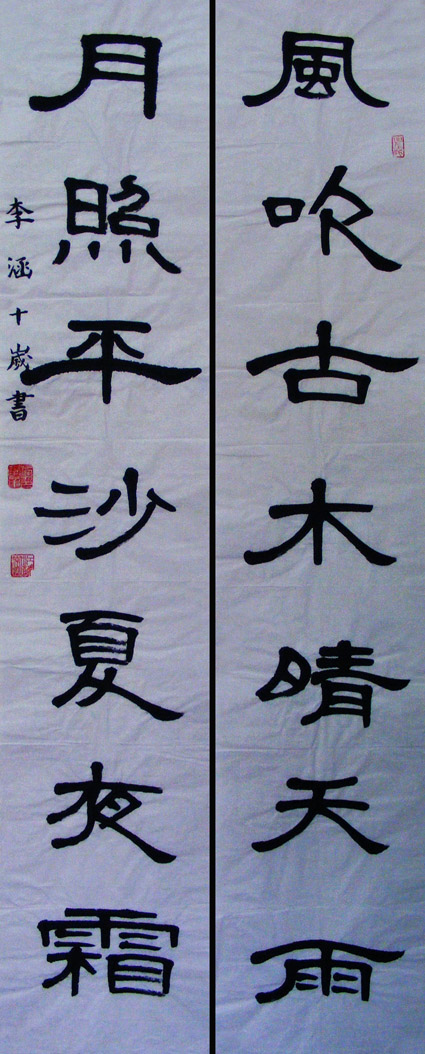 風吹古木晴天雨
月照平沙夏夜霜
李涵十歲書